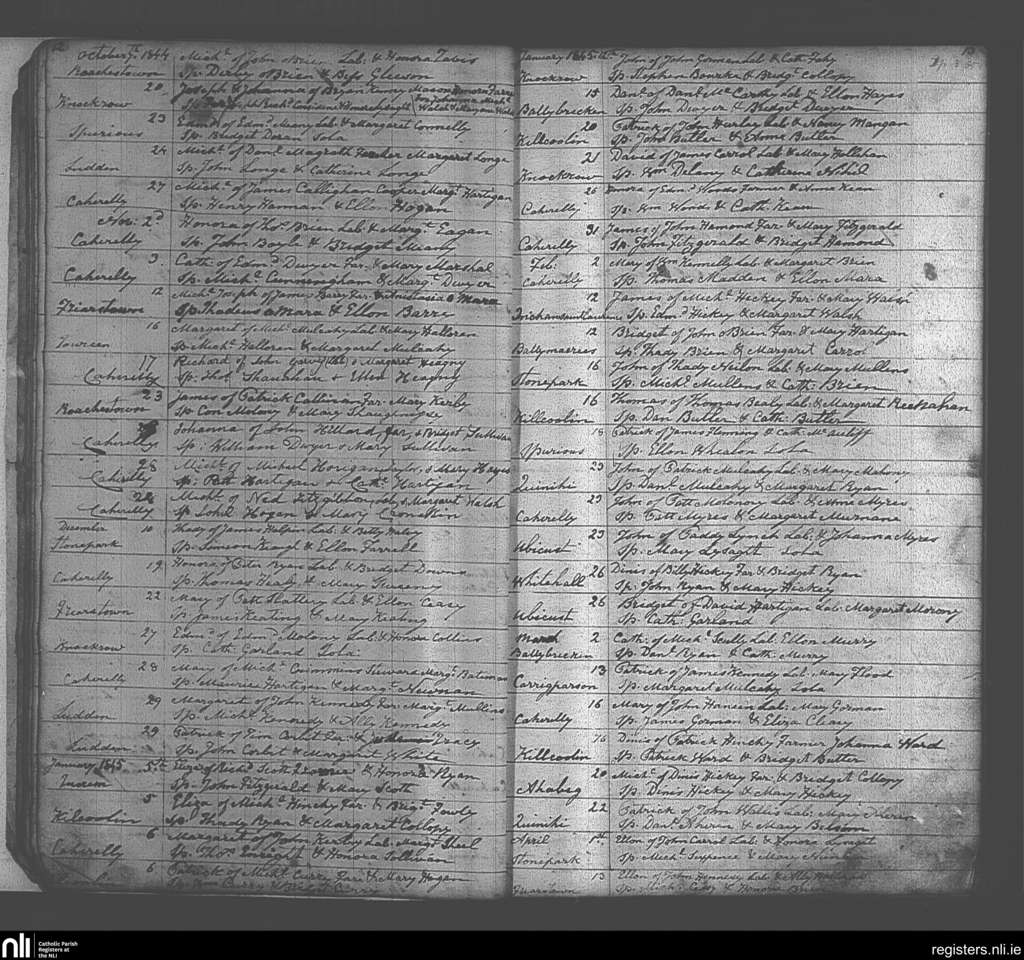 October 1844 Mich.l of John Brien Lab: & Honora
Roachestown Sp. Derby O Brien & Bess Gleeson
20 Joseph & Johanna of Bryan Kenny Mason Honora
Knockrow
23 Edm.d of Edm.d Meany Lab & Margaret Connelly
Spurious Sp. Bridget Doran Sola
24 Mich.l of Dan.l Magrath Margaret Longe
Ludden Sp. John Longe & Catherine Longe
27 Mich.l of James Callighan Cooper Marg.t Hartigan
Caherelly Sp. Henry Hannan & Ellen Hogan
Nov: 2d Honora of Tho.s Brien Lab & Marg.t Eagan
Caherelly Sp. John Boyle & Bridget Meany
3 Cath. of Edm.d Dwyer Far: & Mary Marshal
Caherelly Sp. Mich.l Cunningham & Marg.t Dwyer
12 Mich.l Joseph of James Barry Far & Anastasia O Mara
Friarstown Sp. Thadeus O Mara & Ellen Barry
16 Margaret of Mich.l Mulcahy Lab & Mary Halloran
Sp. Mich.l Halloran & Margaret Mulcahy
17 Richard of John & Margaret Heagny
Caherelly Sp. Tho.s Shanahan & Ellen Heagny
23 James of Patrick Callinan Far: Mary Kirby
Roachestown Sp. Con Molony & Mary Shaughnessy
Johanna of John Hillard far, & Bridget Sullivan
Caherelly Sp: William Dwyer & Mary Sullivan
28 Mich.l of Michael Horigan Taylor, & Mary Hayes
Caherelly Sp: Patt Hartigan & Cath: Hartigan
28 Mich.l of Ned Fitzgibbon Lab, & Margaret Walsh
Caherelly Sp John Hogan & Mary
December 10 Thady of James Halpin Lab: & Betty
Stonepark Sp. Simeon & Ellen Farrell
19 Honora of Peter Ryan Lab & Bridget Downs
Caherelly Sp. Thomas Healy & Mary
22 Mary of Patt Slattery Lab & Ellen Casey
Friarstown Sp James Keating & Mary Keating
27 Edm.d of Edm.d Molony Lab: & Honora Collins
Knockrow Sp. Cath: Garland Sola:
28 Mary of Mich.l Crimmins Steward Marg.t Bateman
Caherelly Sp. Maurice Hartigan & Marg.t
29 Margaret of John Kennedy Far: Marg.t Mullins
Ludden Sp. Mich.l Kennedy & Ally Kennedy
29 Patrick of Tim Corbet Far: & Tracy
Ludden Sp. John Corbet & Margaret White
January 1845 5th Eliza of Rich.d Scott & Honora Ryan
Sp. John Fitzgerald & Mary Scott
5 Eliza of Mich.l Hinchy Far: & Brig.t Fowly
Kilcoolin Sp. Thady Ryan & Margaret Collopy
6 Margaret of John Kirby Lab: Marg.t Sheal
Caherelly Sp. Tho.s Enright & Honora Sullivan
6 Patrick of Mich.l Curry Far: & Mary Hogan
13
January 1845 John of John Gorman Lab & Cath: Fahy
Knockrow Sp. Stephen Bourke & Bridg.t Collopy
15 Dan.l of Dan.l McCarthy Lab & Ellen Hayes
Ballybricken Sp. John Dwyer & Bridget Dwyer
20 Patrick of John Hurley Lab & Nancy Mangan
Killcoolin Sp. John Butler & Anne Butler
21 David of James Carrol Lab & Mary Hallihan
Knockrow Sp. Wm Delany & Catherine Nihil
26 Honora of Edm.d Woods Farmer & Anne Kean
Caherelly Sp. Wm Woods & Cath: Kean
31 James of John Hamond Far & Mary Fitzgerald
Caherelly Sp. John Fitzgerald & Bridget Hamond
Feb: 2 Mary of Wm Kennelly Lab & Margaret Brien
Caherelly Sp. Thomas Madden & Ellen Mara
12 James of Mich.l Hickey Far: & Mary Walsh
Sp. Edm.d Hickey & Margaret Walsh
12 Bridget of John O Brien Far: & Mary Hartigan
Sp. Thady Brien & Margaret Carrol
16 John of Thady Neilon Lab & Mary Mullens
Stonepark Sp. Mich.l Mullens & Cath: Brien
16 Thomas of Thomas Healy Lab: & Margaret
Killcoolin Sp. Dan Butler & Cath: Butler
18 Patrick of James Fleming & Cath: McAuliff
Spurious Sp. Ellen Whealon Sola
23 John of Patrick Mulcahy Lab: & Mary Mahony
Sp. Dan.l Mulcahy & Margaret Ryan
23 John of Patt Molonoy Lab & Anne Myres
Caherelly Sp. Patt Myres & Margaret Murnane
23 John of Paddy Lynch Lab: & Johanna Myres
Ubicust Sp. Mary Lysaght Sola
26 Dinis of Billy Hickey Far & Bridget Ryan
Whitehall Sp. John Ryan & Mary Hickey
26 Bridget of David Hartigan Lab: Margaret Morony
Ubicust Sp. Cath: Garland
March 2 Cath: of Mich.l Scully Lab: Ellen Murry
Ballybrickin Sp. Dan.l Ryan & Cath: Murry
13 Patrick of James Kennedy Lab: Mary Flood
Carrigparson Sp. Margaret Mulcahy Sola
16 Mary of John Hansen Lab: Mary Gorman
Caherelly Sp. James Gorman & Eliza Cleary
16 Dinis of Patrick Hinchy Farmer Johanna Ward
Killcoolin Sp. Patrick Ward & Bridget Butler
20 Mich.l of Dinis Hickey Far: & Bridget Collopy
Ahabeg Sp. Dinis Hickey & Mary Hickey
22 Patrick of John Wallis Lab: Mary
Sp. Dan.l & Mary
April 1st Ellen of John Carrol Lab: & Honora Lysaght
Stonepark Sp. Mich.l & Mary
13 Ellen of John Kennedy Lab: & Ally
Friarstown Sp. Mich.l Casey & Honora
nli Catholic Parish
Registers at
the NLI
registers.nli.ie